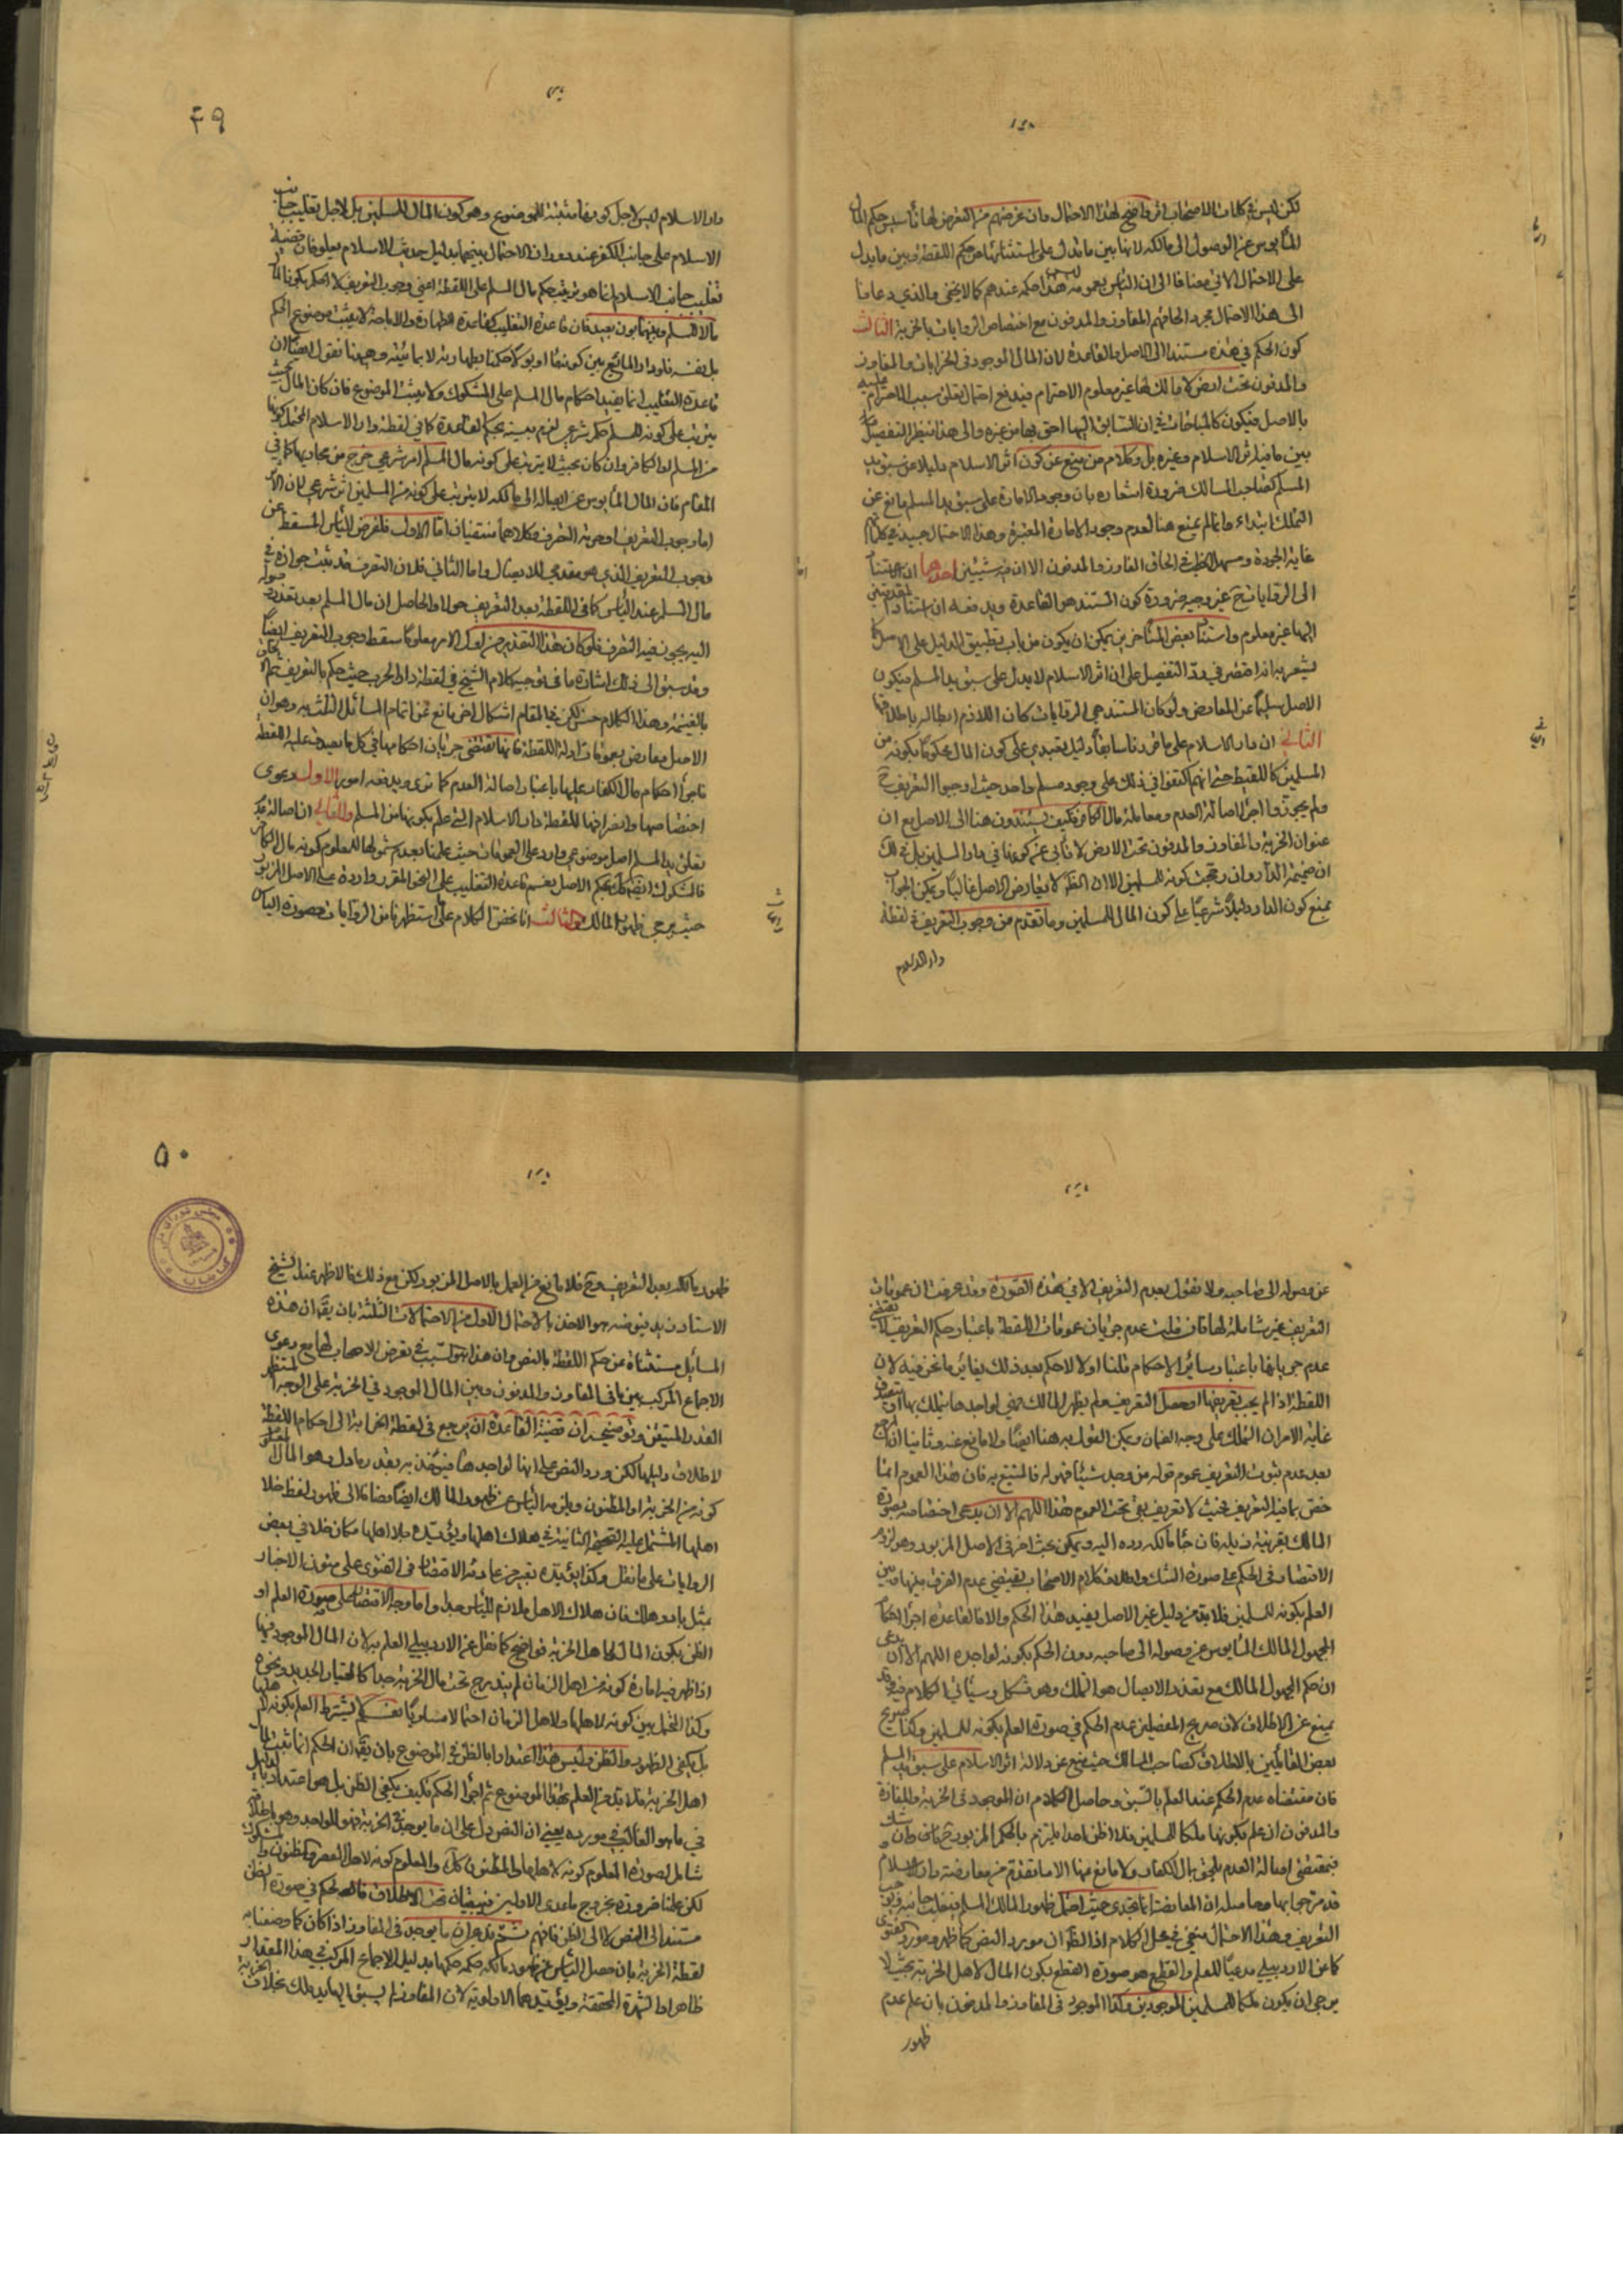 لكن ليس في كلمات الاصحاب اثر واضح لهذا الاحتمال وان غرضهم من التعرض لها تأسيس حكم المال
المأيوس عن الوصول الى مالكه لانها بين ما يدل على استثنائها من حكم اللقطة وبين ما يدل
على الاحتمال الاتي مضافا الى ان اليأس بعمومه ليس هذا حكمه عندهم كما لا يخفى والذي دعانا
الى هذا الاحتمال مجرد الحاقهم المفاوز والمدفون مع اختصاص الروايات بالخربة الثالث
كون الحكم في هذه مستندا الى الاصل والقاعدة لان المال الموجود في الخرابات والمفاوز
والمدفون تحت ارض لا مالك لها غير معلوم الاحترام فيدفع احتمال تعلق سبب الاحترام عليه
بالاصل فيكون كالمباحات في ان السابق اليها احق بها من غيره والى هذا ينظر التفصيل
بين ما فيه اثر الاسلام وغيره بل وكلام من منع عن كون اثر الاسلام دليلا عن سبق يد
المسلم كصاحب المسالك ضرورة اشعاره بان وجود الامارة على سبق يد المسلم مانع عن
التملك ابتداء وانما لم يمنع هنا لعدم وجود الامارة المعتبرة وهذا الاحتمال جيد في
غاية الجودة ومسهل للخطب في الحاق المفاوز والمدفون الا ان فيه شيئين احدهما ان
الى الروايات ح غير وجيه ضرورة كون المستند هو القاعدة ويدفعه ان استناد المتقدمين
اليها غير معلوم واستناد بعض المتأخرين يمكن ان يكون من باب تطبيق الدليل على الاصل كما
يشعر به انه اقتصر في رد التفصيل على ان اثر الاسلام لا يدل على سبق يد المسلم فيكون
الاصل سليما عن المعارض ولو كان المستند هي الروايات كان اللازم ابطاله باطلاقها
الثاني ان دار الاسلام على ما قررنا سابقا دليل تعبدي على كون المال محكوما بكونه من
المسلمين كاللقيط حتى انهم اكتفوا في ذلك على وجود مسلم واحد حيث اوجبوا التعريف ح
ولم يجوزوا اجراء اصالة العدم ومعاملة مال الكافر فكيف يستندون هنا الى الاصل مع ان
عنوان الخربة والمفاوز والمدفون تحت الارض لا تأبى عن كونها في دار المسلمين بل في ذلك
ان ضميمة الدار وان رجحت كونه للمسلمين الا ان الظن لا يعارض الاصل غالبا ويمكن الجواب
بمنع كون الدار دليلا شرعيا على كون المال للمسلمين وما تقدم من وجوب التعريف في لقطة
دار الاسلام
۴۹
دار الاسلام ليس لاجل كونها مثبتة للموضوع وهو كون المال للمسلمين بل لاجل تغليب جانب
الاسلام على جانب الكفر عند دوران الاحتمال بينهما بدليل حديث الاسلام يعلو فان قضية
تغليب جانب الاسلام انما هو ترتيب حكم مال المسلم على اللقطة اعني وجوب التعريف لا الحكم بكونها
مالا للمسلم وبينهما بون بعيد فان قاعدة التغليب كقاعدة الطهارة والاباحة لا يثبت موضوع الحكم
بل نفسه فلو دار المائع بين كونه ماء او بولا حكمنا بطهارته لا بمائيته وهيهنا نقول ايضا ان
قاعدة التغليب انما يفيد احكام مال المسلم على المشكوك ولا يثبت الموضوع فان كان المال بحيث
يترتب على كونه للمسلم حكم شرعي لزم ترتيبه بحكم القاعدة كما في لقطة دار الاسلام المحتمل كونها
من المسلم او الكافر وان كان بحيث لا يترتب على كونه مال المسلم اثر شرعي خرج من مجاريها كما في
المقام فان المال المأيوس عن ايصاله الى مالكه لا يترتب على كونه من المسلمين اثر شرعي لان الاثر
اما وجوب التعريف او حرمة التصرف وكلاهما منتفيان اما الاول فلفرض اليأس المسقط عن
وجوب التعريف الذي هو مقدمي للايصال واما الثاني فلان التصرف قد ثبت جوازه في
مال المسلم عند اليأس كما في اللقطة بعد التعريف حولا والحاصل ان مال المسلم بعد تعذر وصوله
اليه يجوز فيه التصرف فلو كان هذا التعذر من اول الامر معلوما سقط وجوب التعريف ايضا
وقد سبق الى ذلك اشارة ما في توجيه كلام الشيخ في لقطة دار الحرب حيث حكم بالتعريف ثم الالحاق
بالغنيمة وهذا الكلام حسن لكن في المقام اشكال اخر مانع عن اتمام المسائل الثلث به وهو ان
الاصل معارض بعمومات ادلة اللقطة فانها تقتضي جريان احكامها في كل ما يصدق عليه اللقطة
فاجراء احكام مال الكفار عليها باعتبار اصالة العدم كما ترى ويدفعه امور الاول دعوى
اختصاصها وانصرافها للقطة دار الاسلام التي علم بكونها من المسلم والثاني ان اصالة عدم
تعلق يد المسلم اصل موضوعي وارد على العمومات حيث علمنا بعدم شمولها للمعلوم كونه مال الكافر
فالمشكوك ايضا كك بحكم الاصل نعم قاعدة التغليب على النحو المقرر واردة على الاصل المزبور
حيث يرجى ظهور المالك والثالث انا نخص الكلام على ما استظهرنا من الروايات بصورة اليأس
عن وصوله الى صاحبه ولا نقول بعدم التعريف الا في هذه الصورة وقد عرفت ان عمومات
التعريف غير شاملة لها فان قلت عدم جريان عمومات اللقطة باعتبار حكم التعريف لا يقتضي
عدم جريانها باعتبار سائر الاحكام قلنا اولا لا حكم بعد ذلك يغاير ما نحن فيه لان
اللقطة اذا لم يجب تعريفها او حصل التعريف ولم يظهر المالك فهي لواجدها يتملك بها او يتصدق
غاية الامر ان التملك على وجه الضمان ويمكن القول به هنا ايضا ولا مانع عنه وثانيا ان المرجع
بعد عدم ثبوت التعريف عموم قوله من وجد شيئا فهو له فاليتمتع به فان هذا العموم انما
خص بما فيه التعريف فحيث لا تعريف بقي تحت العموم هذا اللهم الا ان يدعى اختصاصه بصورة
المالك بقرينة ذيله فان جاء مالكه رده اليه ويمكن بحث اخر في الاصل المزبور وهو لزوم
الاقتصار في الحكم على صورة الشك واطلاق كلام الاصحاب يقتضي عدم الفرق بينها وبين
العلم بكونه للمسلمين فلا بد من دليل غير الاصل يفيد هذا الحكم والا فالقاعدة اجراء احكام
المجهول المالك المأيوس عن وصوله الى صاحبه دون الحكم بكونه لواجده اللهم الا ان يدعى
ان حكم المجهول المالك مع تعذر الايصال هو التملك وهو مشكل وسيأتي الكلام فيه وقد
يمنع عن الاطلاق لان صريح المفصلين عدم الحكم في صورة العلم بكونه للمسلمين وكذا صريح
بعض القائلين بالاطلاق كصاحب المسالك حيث منع عن دلالة اثر الاسلام على سبق يد المسلم
فان مقتضاه عدم الحكم عند العلم بالسبق وحاصل الكلام ان الموجود في الخربة والمفازة
والمدفون ان علم بكونها ملكا للمسلمين فلا اظن احدا يلتزم بالحكم المزبور وان شك
فمقتضى اصالة العدم يلحق بمال الكفار ولا مانع منها الا ما تقدم من معارضة دار الاسلام
قد مر جوابها وحاصله ان المعارضة انما تجدي حيث احتمل ظهور المالك المسلم فيغلب جانبه في وجوب
التعريف وهذا الاحتمال منتف في محل الكلام اذ الظ ان مورد النص كما ظهر ومورد الفتوى
كما عن الاردبيلي مدعيا للعلم والقطع هو صورة القطع بكون المال لاهل الخربة بحيث لا
يرجى ان يكون ملكا للمسلمين الموجودين وكذا الموجود في المفاوز والمدفون بان علم عدم
ظهور
۵۰
ظهور مالكه بعد التعريف وح فلا مانع من العمل بالاصل المزبور ولكن مع ذلك فالاظهر عند الشيخ
الاستاد هو الاخذ بالاحتمال الاول من الاحتمالات الثلثة بان يقال ان هذه
المسائل مستثناة عن حكم اللقطة بالنص وان هذا هو السبب في تعرض الاصحاب لها مع دعوى
الاجماع المركب بين ما في المفاوز والمدفون وبين المال الموجود في الخربة على الوجه
القدر المتيقن وتوضيحه ان قضية القاعدة ان يرجع في لقطة الخرابة الى احكام اللقطة
لاطلاق دليلها لكن ورد النص على انها لواجدها فيؤخذ به بقدر مادل وهو المال المعلوم
كونه من الخربة او المظنون ويلزمه اليأس عن ظهور المالك ايضا مضافا الى ظهور لفظ خلا
اهلها المشتمل عليه الصحيحة الثانية في هلاك اهلها ويؤيده جلا اهلها مكان خلا في بعض
الروايات على ما نقل وكذا يؤيده تعبير من عادته الاقتصار في الفتوى على متون الاخبار
بمثل باد وهلك فان هلاك الاهل ملازم لليأس جدا واما وجه الاقتصار على صورة العلم او
الظن بكون المال لاهل الخربة فواضح كما نقل عن الاردبيلي العلم به لان المال الموجود فيها
اذا ظهر فيه امارة كونه من اهل الزمان لم يندرج تحت مال الخربة جدا كالمختبار الجديد ونحوه
وكذا المحتمل بين كونه لاهلها ولاهل الزمان احتمالا متساويا نعم لا يشترط العلم بكونه لاهلها
بل يكفي الظهور والظن وليس هذا اعتدادا بالظن في الموضوع بان يقال ان الحكم انما ثبت لمال
اهل الخربة فلا بد من العلم بهذا الموضوع ثم اجراء الحكم فكيف يكفي الظن بل هو اعتداد بالدليل
في ما هو الغالب في مورده يعني ان النص دل على ان ما يوجد في الخربة فهو للواجد وهو باطلاقه
شامل لصورة المعلوم كونه لاهلها والمظنون كك والمعلوم كونه لاهل العصر والمظنون والمشكوك
لكن علمنا ضرورة بخروج ما عدى الاولين فيبقيان تحت الاطلاق فالحكم في صورة الظن
مستند الى النص لا الى الظن فافهم ثم ان ما يوجد في المفاوز اذا كان كما وصفنا به
لقطة الخربة بان حصل اليأس عن ظهور مالكه حكمه حكمها بدليل الاجماع المركب في هذا المقدار
ظاهرا والشهرة المحققة ويؤيدهما الاولوية لان المفاوز لم يسبق اليها يد مالك بخلاف الخربة